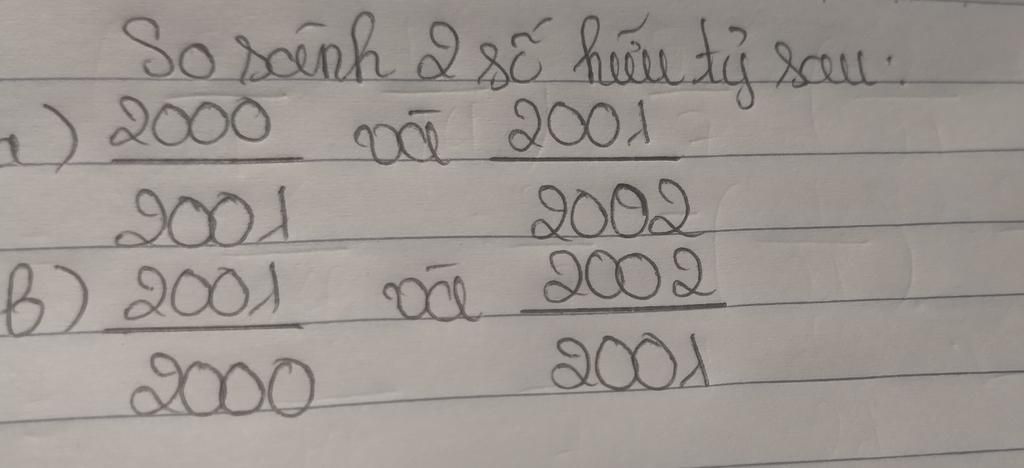 So sánh 2 số hữu tỷ sau:
a) 2000 và 2001
2001 2002
B) 2001 và 2002
2000 2001